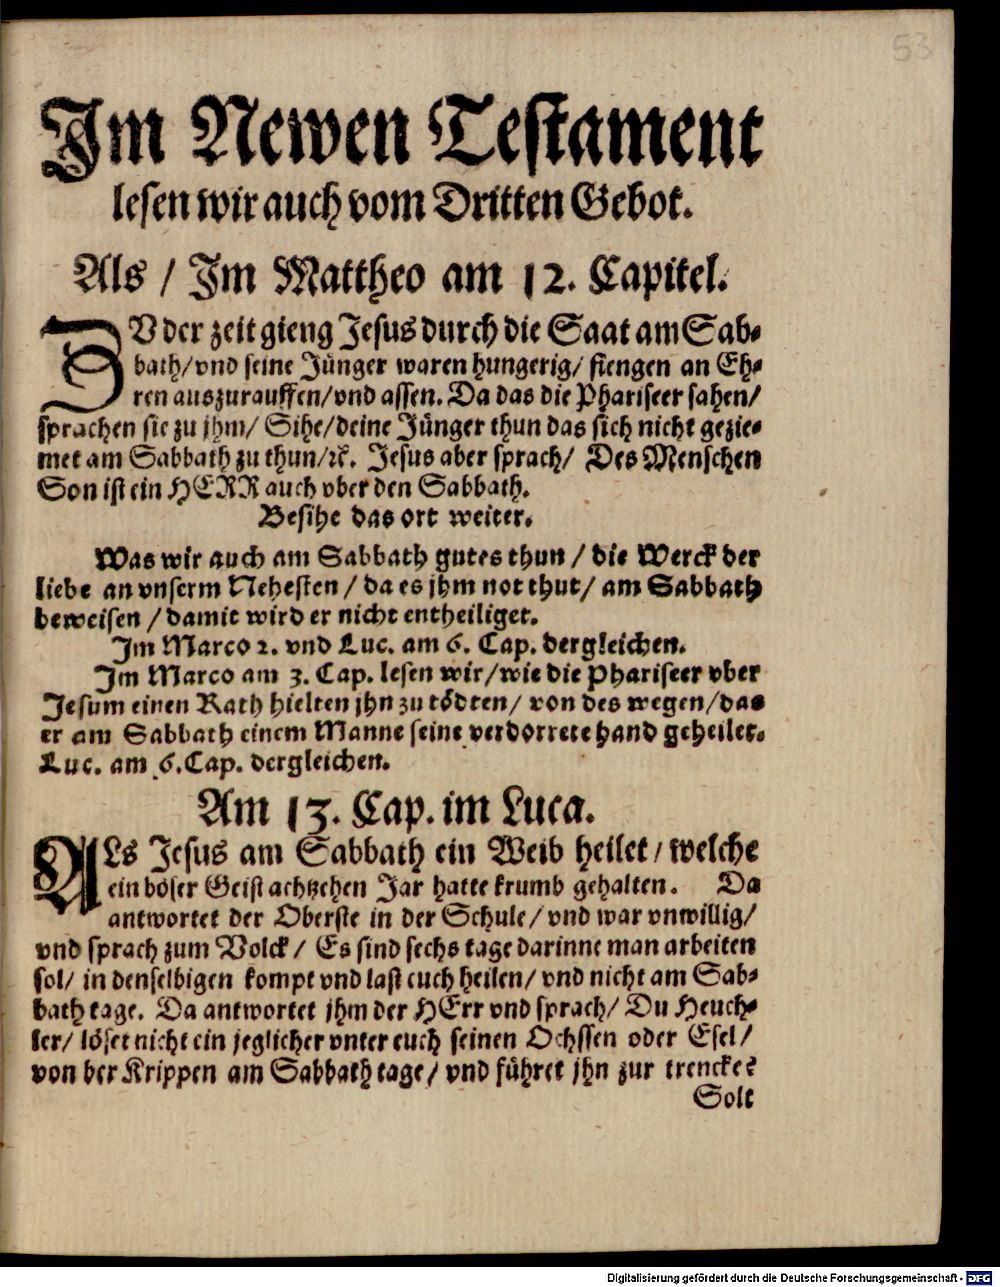 53
Im Newen Testament
lesen wir auch vom Dritten Gebot.
Als / Im Mattheo am 12. Capitel.
ZV der zeit gieng Jesus durch die Saat am Sab-
bath/ vnd seine Jünger waren hungerig/ fiengen an Eh-
ren auszurauffen/ vnd assen. Da das die Phariseer sahen/
sprachen sie zu jhm/ Sihe/ deine Jünger thun das sich nicht gezie-
met am Sabbath zu thun/ ꝛc. Jesus aber sprach/ Des Menschen
Son ist ein HERR auch vber den Sabbath.
Besihe das ort weiter.
Was wir auch am Sabbath gutes thun / die Werck der
liebe an vnserm Nehesten / da es jhm not thut/ am Sabbath
beweisen / damit wird er nicht entheiliget.
Im Marco 2. vnd Luc. am 6. Cap. dergleichen.
Im Marco am 3. Cap. lesen wir/ wie die Phariseer vber
Jesum einen Rath hielten jhn zu tödten/ von des wegen/ das
er am Sabbath einem Manne seine verdorrete hand geheilet.
Luc. am 6. Cap. dergleichen.
Am 13. Cap. im Luca.
ALs Jesus am Sabbath ein Weib heilet / welche
ein böser Geist achtzehen Jar hatte krumb gehalten. Da
antwortet der Oberste in der Schule/ vnd war vnwillig/
vnd sprach zum Volck/ Es sind sechs tage darinne man arbeiten
sol/ in denselbigen kompt vnd last euch heilen/ vnd nicht am Sab-
bath tage. Da antwortet jhm der HErr vnd sprach/ Du Heuch-
ler/ löset nicht ein jeglicher vnter euch seinen Ochssen oder Esel/
von der Krippen am Sabbath tage/ vnd führet jhn zur trencke?
Solt
Digitalisierung gefördert durch die Deutsche Forschungsgemeinschaft - DFG